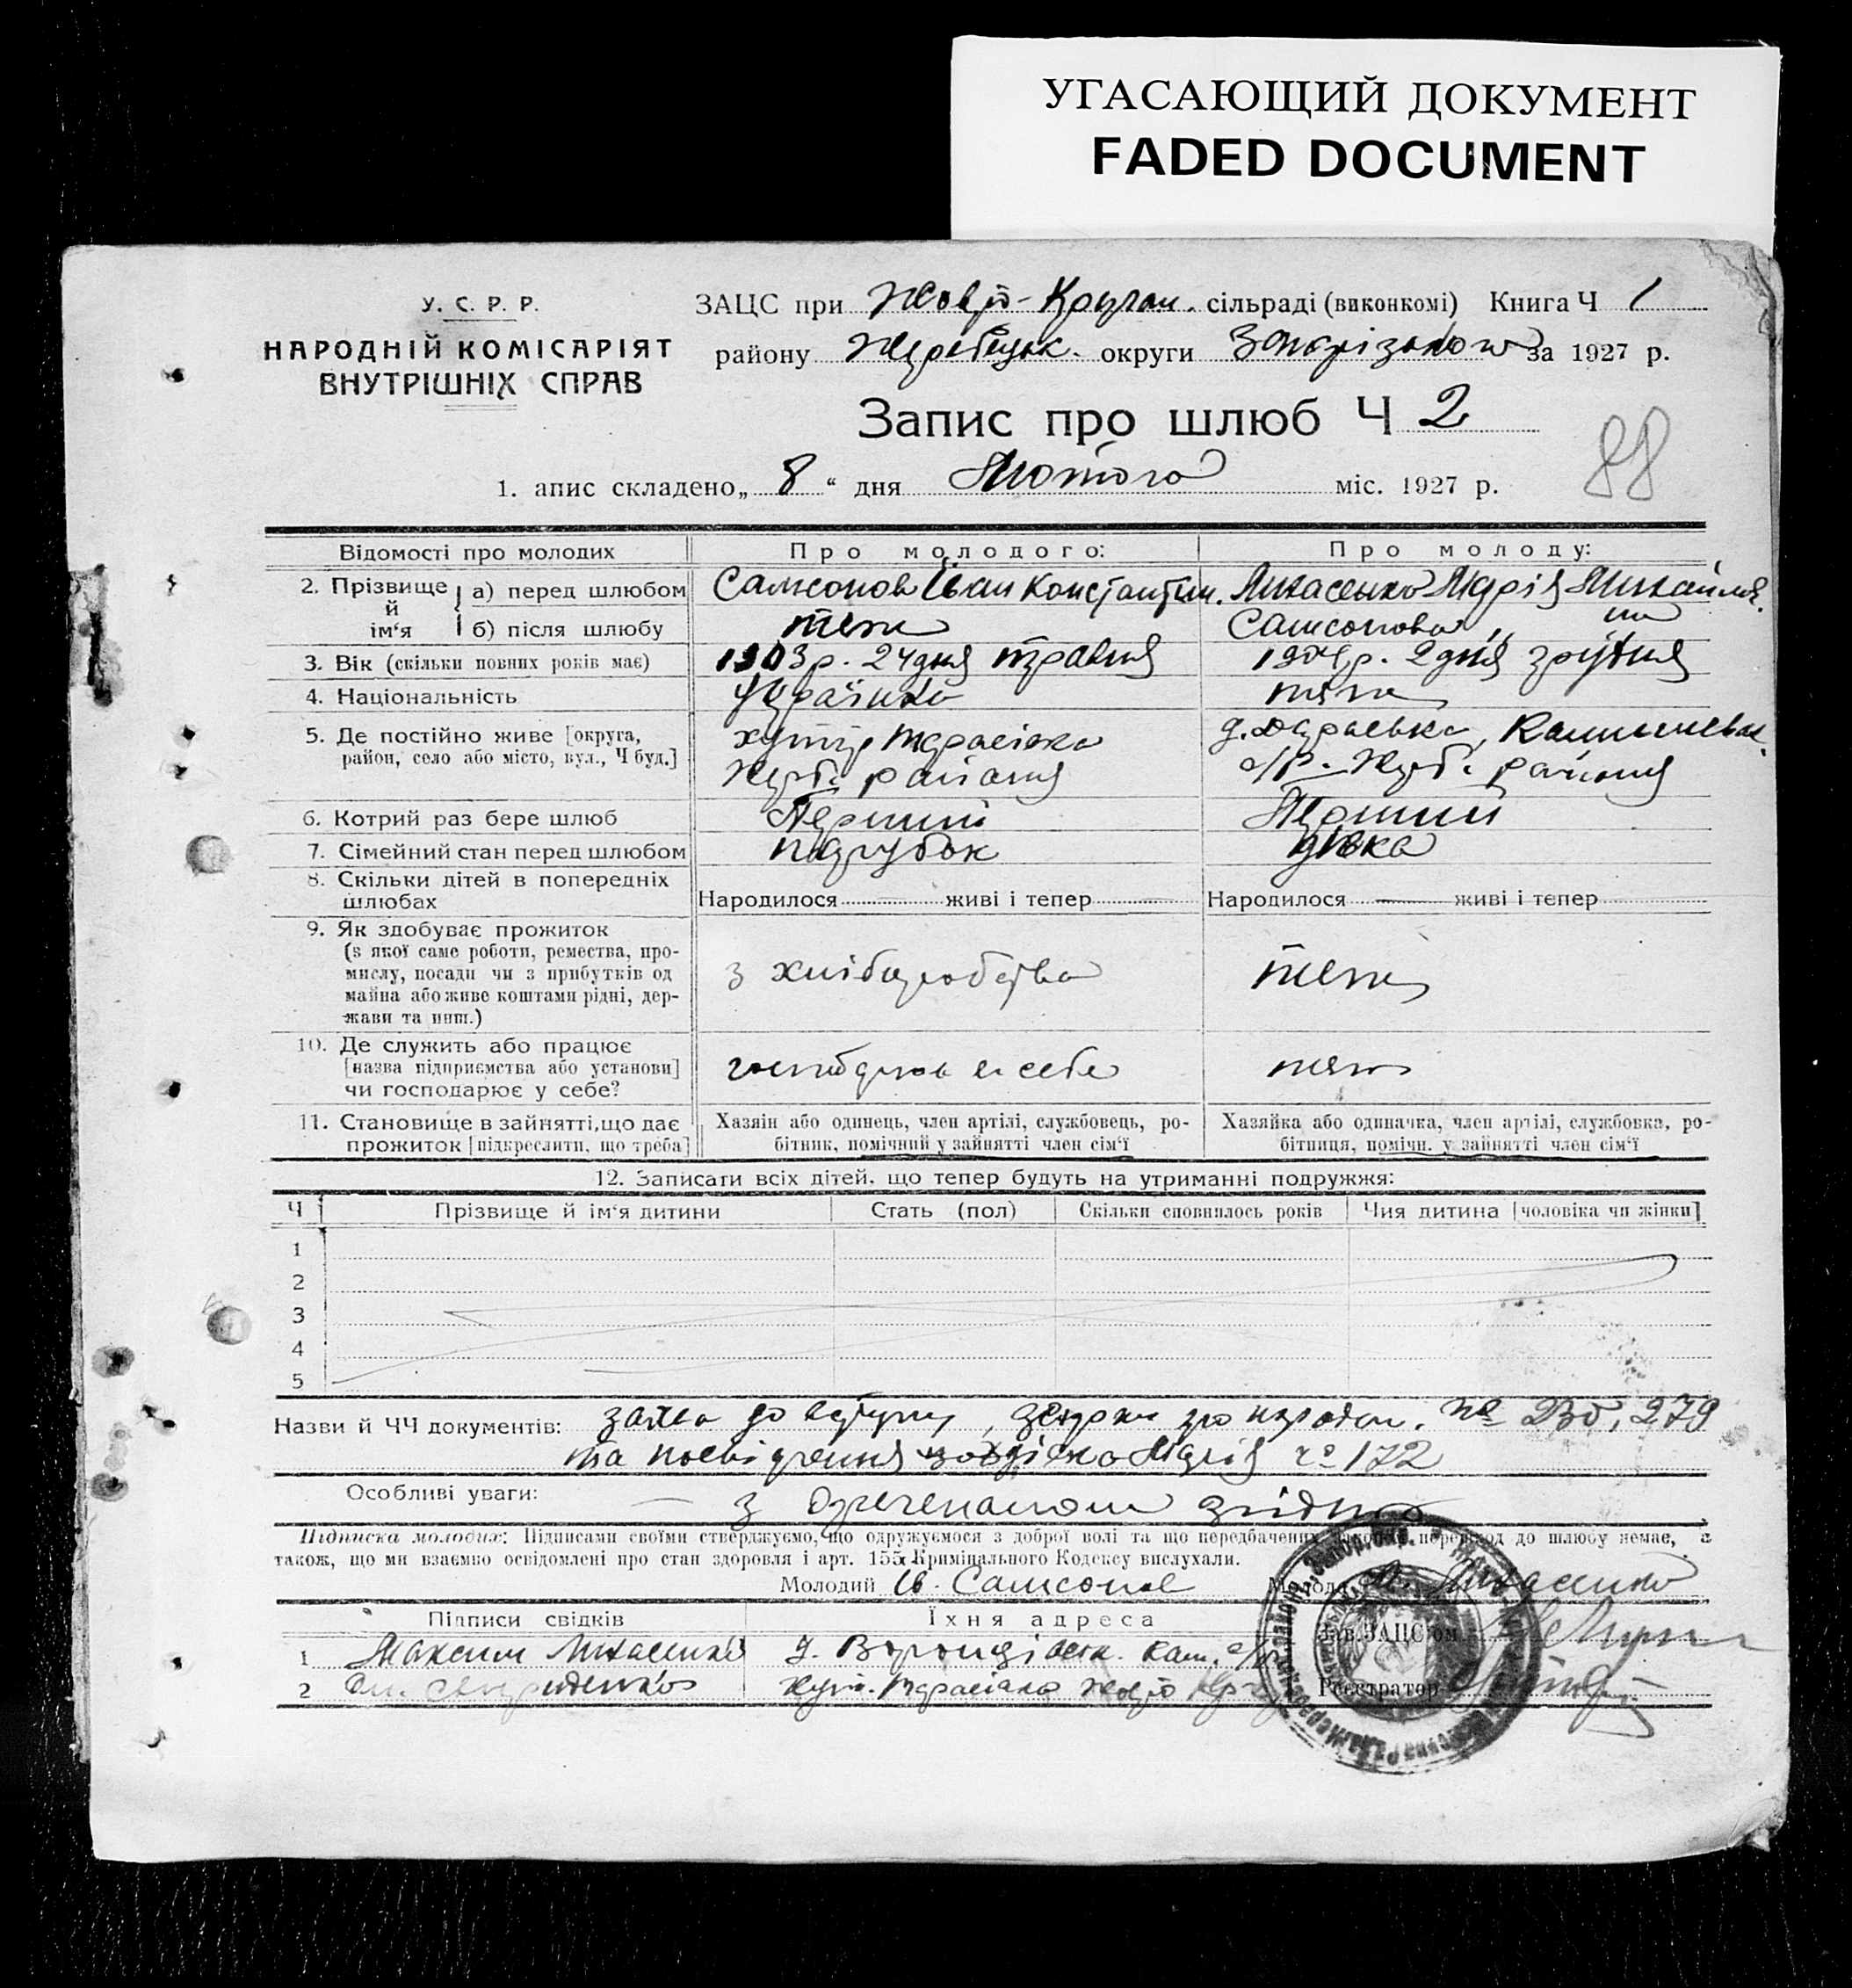 УГАСАЮЩИЙ ДОКУМЕНТ
FADED DOCUMENT
У. С. Р. Р.
НАРОДНІЙ КОМІСАРІЯТ
ВНУТРІШНІХ СПРАВ
ЗАЦС при сільраді (виконкомі) Книга Ч 1
району Жеребецьк. округи Запорізької за 1927 р.
Запис про шлюб Ч 2
88
1. апис складено „ 8 “ дня Лютого міс. 1927 р.
Відомості про молодих Про молодого: Про молоду:
2. Прізвище й ім‘я
а) перед шлюбом Самсонов Іван Константин. Лихасенко Марія Михайлів.
б) після шлюбу теж Самсонова „
3. Вік (скільки повних років має) 1903 р. 24 дня травня 1904 р. 2 дня грудня
4. Національність теж
5. Де постійно живе [округа, район, село або місто, вул., Ч буд.] хутір Тарасівка Жереб. району с/р. Жереб. району
6. Котрий раз бере шлюб Перший Перший
7. Сімейний стан перед шлюбом парубок дівка
8. Скільки дітей в попередніх шлюбах Народилося — живі і тепер Народилося — живі і тепер
9. Як здобуває прожиток
(з якої саме роботи, ремества, про-
мислу, посади чи з прибутків од
майна або живе коштами рідні, дер-
жави та инш.)
з хліборобства теж
10. Де служить або працює
[назва підприємства або установи]
чи господарює у себе?
в себе теж
11. Становище в зайнятті, що дає
прожиток [підкреслити, що треба]
Хазяїн або одинець, член артілі, службовець, ро-
бітник, помічний у зайнятті член сім‘ї
Хазяйка або одиначка, член артілі, службовка, ро-
бітниця, помічн. у зайнятті член сім‘ї
12. Записати всіх дітей, що тепер будуть на утриманні подружжя:
Ч Прізвище й ім‘я дитини Стать (пол) Скільки сповнилось років Чия дитина [чоловіка чи жінки]
1
2
3
4
5
Назви й ЧЧ документів: заява до вступу, про народж. №
та посвідчення Марія № 172
Особливі уваги: — з
Підписка молодих: Підписами своїми стверджуємо, що одружуємося з доброї волі та що передбачених законом перешкод до шлюбу немає, а
також, що ми взаємно освідомлені про стан здоровля і арт. 155 Кримінального Кодексу вислухали.
Молодий Ів. Самсонов Молода
Підписи свідків Їхня адреса Зав. ЗАЦС'ом
1 Максим
2 Хут. Тарасівка Реєстратор